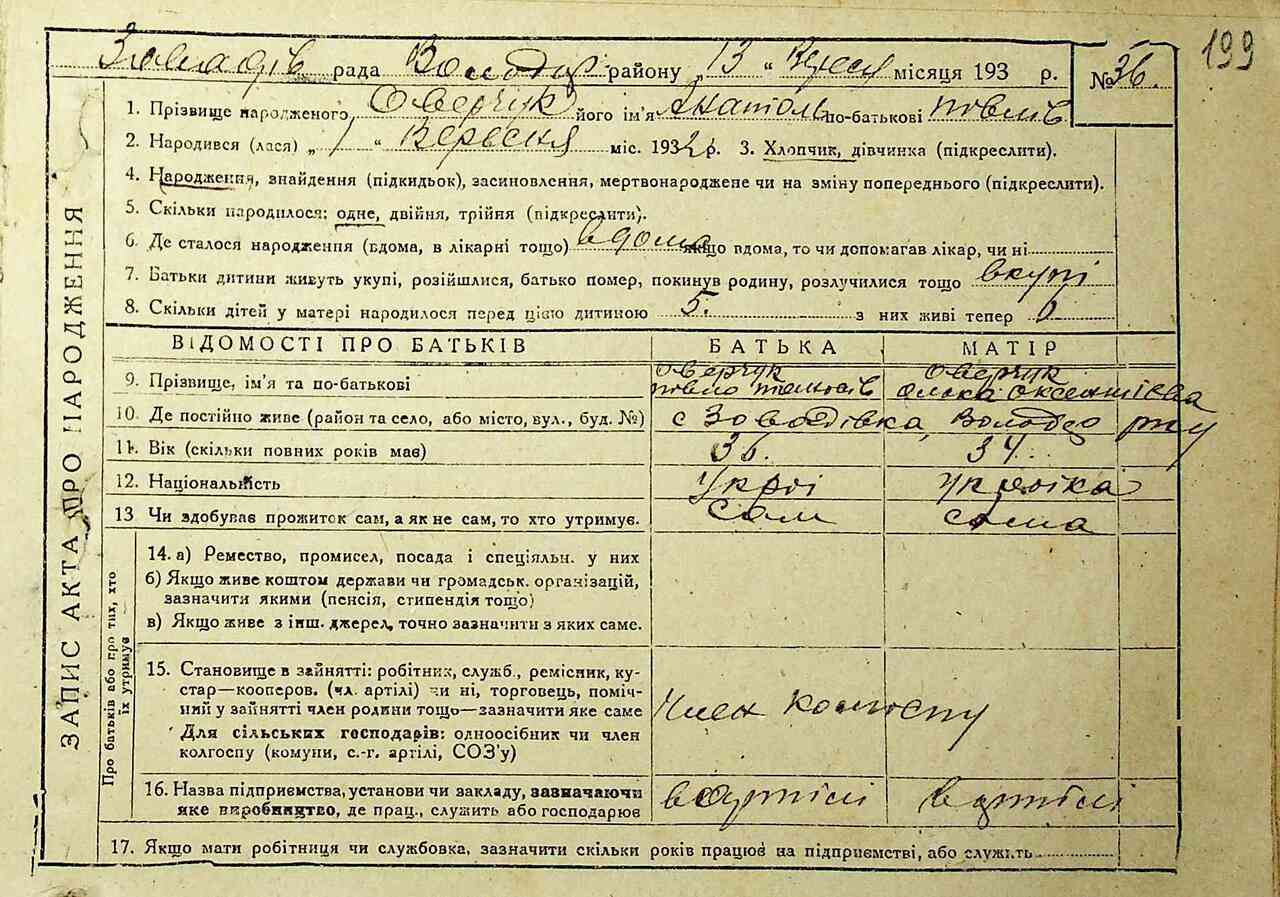 199
Завадів. рада Володар району „13“ Вересн місяця 193 р. №36.
1. Прізвище народженого Оверчук його ім'я Анатоль по-батькові Повлів
2. Народився (лася) „1“ Вересня міс. 1932 р. 3. Хлопчик, дівчинка (підкреслити).
4. Народження, знайдення (підкидьок), засиновлення, мертвонароджене чи на зміну попереднього (підкреслити).
5. Скільки народилося: одне, двійня, трійня (підкреслити).
6. Де сталося народження (вдома, в лікарні тощо) вдома якщо вдома, то чи допомагав лікар, чи ні
7. Батьки дитини живуть укупі, розійшлися, батько помер, покинув родину, розлучилися тощо вкупі
8. Скільки дітей у матері народилося перед цією дитиною 5. з них живі тепер
ЗАПИС АКТА ПРО НАРОДЖЕННЯ
ВІДОМОСТІ ПРО БАТЬКІВ БАТЬКА МАТІР
9. Прізвище, ім'я та по-батькові Оверчук Оверчук
Повло
10. Де постійно живе (район та село, або місто, вул., буд. №) с Зовадівка, Володар рну
11. Вік (скільки повних років має) 36. 34.
12. Національність Украї Украіка
13 Чи здобував прожиток сам, а як не сам, то хто утримує. сам сама
Про батьків або про тих, хто
їх утримує
14. а) Ремество, промисел, посада і спеціяльн. у них
б) Якщо живе коштом держави чи громадськ. організацій,
зазначити якими (пенсія, стипендія тощо)
в) Якщо живе з інш. джерел, точно зазначити з яких саме.
15. Становище в зайнятті: робітник, службо., ремісник, ку-
стар—кооперов. (чл. артілі) чи ні, торговець, поміч-
ний у зайнятті член родини тощо—зазначити яке саме
Для сільських господарів: одноосібник чи член
колгоспу (комуни, с.-г. артілі, СОЗ'у)
Член колгоспу
16. Назва підприємства, установи чи закладу, зазначаючи
яке виробництво, де прац., служить або господарює
в артілі в артілі
17. Якщо мати робітниця чи службовка, зазначити скільки років працює на підприємстві, або служить